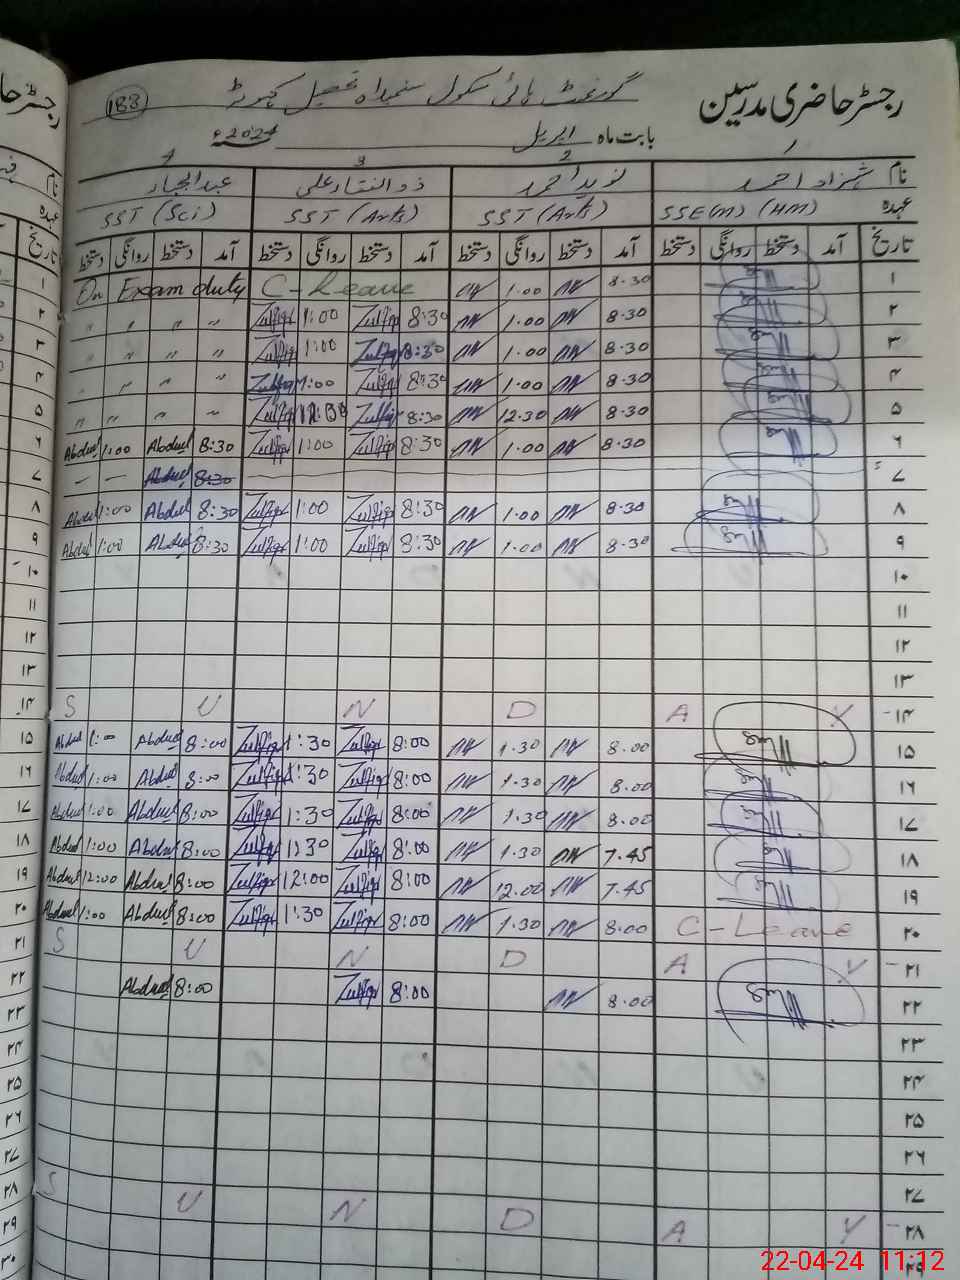 رجسٹر حاضری مدرسین
گورنمنٹ ہائی سکول تحصیل کہوٹہ
188
بابت ماہ اپریل 2024ء
1 2 3 4
نام شہزاد احمد نوید احمد ذوالفقار علی عبدالجبار
عہدہ SSE(M) (HM) SST (Arts) SST (Arts) SST (Sci)
تاریخ آمد دستخط روانگی دستخط آمد دستخط روانگی دستخط آمد دستخط روانگی دستخط آمد دستخط روانگی دستخط
۱ 8.30 1.00 C-Leave On Exam duty
۲ 8.30 1.00 8:30 Zulfiqr 1:00 Zulfiqr " " " "
۳ 8.30 1.00 8:30 Zulfiqr 1:00 Zulfiqr " " " "
۴ 8.30 1.00 8:30 Zulfiqr 1:00 Zulfiqr " " " "
۵ 8.30 12.30 8:30 Zulfiqr Zulfiqr " " " "
۶ 8.30 1.00 8:30 Zulfiqr 1:00 Zulfiqr 8:30 Abdul 1:00 Abdul
۷ 8:30 Abdul — —
۸ 8.30 1.00 8:30 Zulfiqr 1:00 Zulfiqr 8:30 Abdul 1:00 Abdul
۹ 8.30 1.00 8:30 Zulfiqr 1:00 Zulfiqr 8:30 Abdul 1:00 Abdul
۱۰
۱۱
۱۲
۱۳
۱۴ S U N D A Y
۱۵ 8.00 1.30 8:00 Zulfiqr 1:30 Zulfiqr 8:00 Abdul 1:00 Abdul
۱۶ 8.00 1.30 8:00 Zulfiqr 1:30 Zulfiqr 8:00 Abdul 1:00 Abdul
۱۷ 8.00 1.30 8:00 Zulfiqr 1:30 Zulfiqr 8:00 Abdul 1:00 Abdul
۱۸ 7.45 1.30 8:00 Zulfiqr 1:30 Zulfiqr 8:00 Abdul 1:00 Abdul
۱۹ 7.45 12.00 8:00 Zulfiqr 12:00 Zulfiqr 8:00 Abdul 12:00 Abdul
۲۰ C-Leave 8.00 1.30 8:00 Zulfiqr 1:30 Zulfiqr 8:00 Abdul 1:00 Abdul
۲۱ S U N D A Y
۲۲ 8.00 8:00 Zulfiqr 8:00 Abdul
۲۳
۲۴
۲۵
۲۶
۲۷
۲۸ S U N D A Y
۲۹
22-04-24 11:12